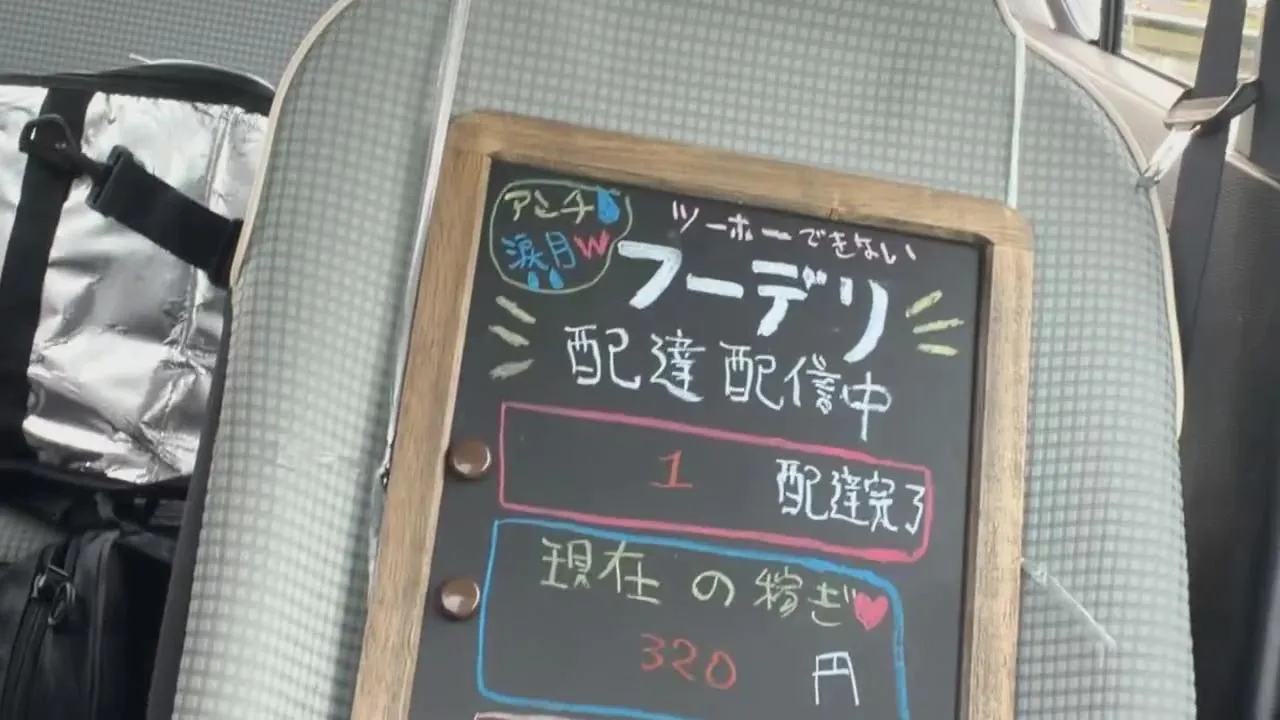 アンチ
涙月W
ツーホーできない
フーデリ
配達配信中
1 配達完了
現在の稼ぎ
320 円